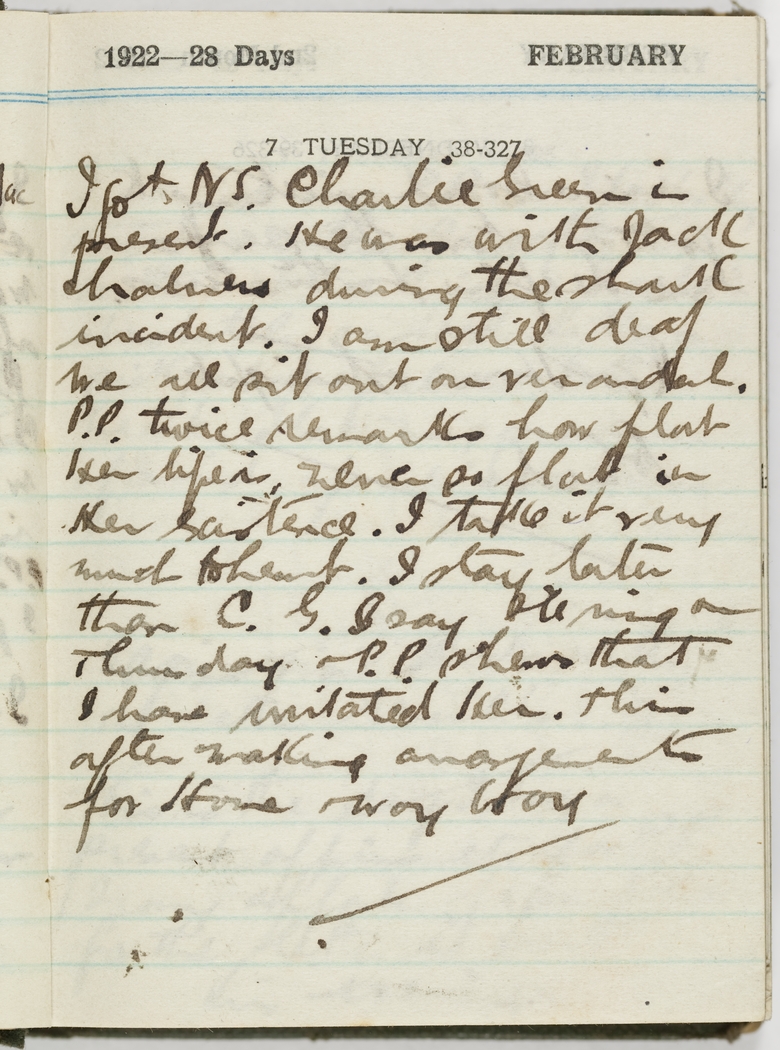 1922—28 Days FEBRUARY
7 TUESDAY 38-327
I go to NS. Charlie Green is
present. He was with Jack
Chalmers during the shark
incident. I am still deaf
We all sit out on verandah.
P.P. twice remarks how flat
Her life is, never so flat in
Her existence. I take it very
much to heart. I stay later
than C. G. I say I'll ring on
Thursday & P.P shews that
I have irritated Her. This
after making arrangements
for Home